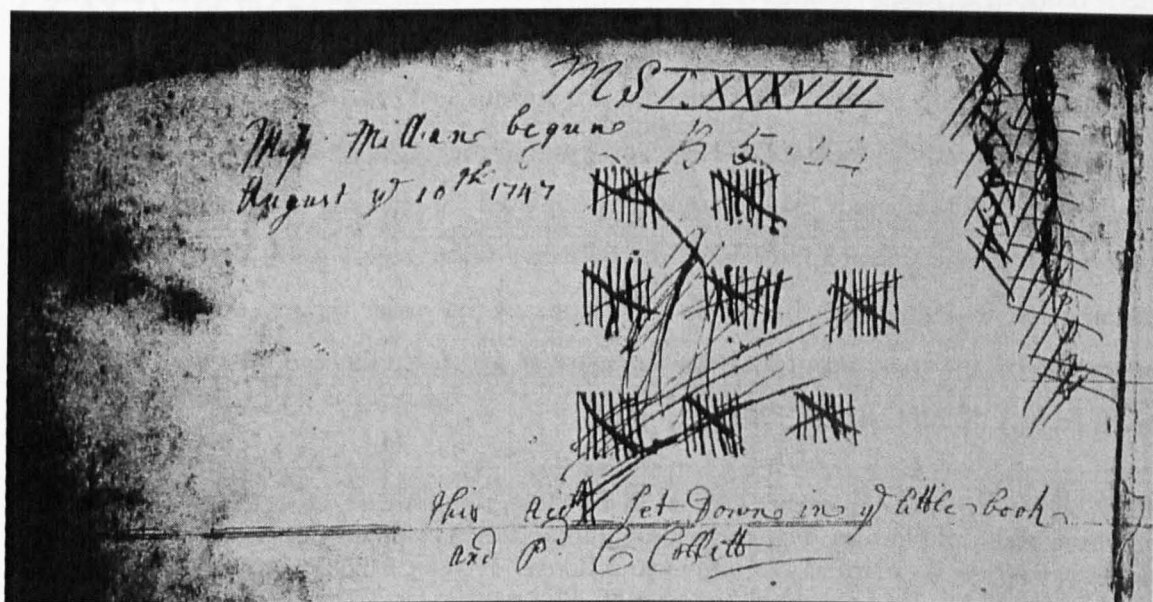 MST. XXXVIII
Miss Millane begun
August ye 10th 1747
this Set Down in ye little book
and Pd C Collett